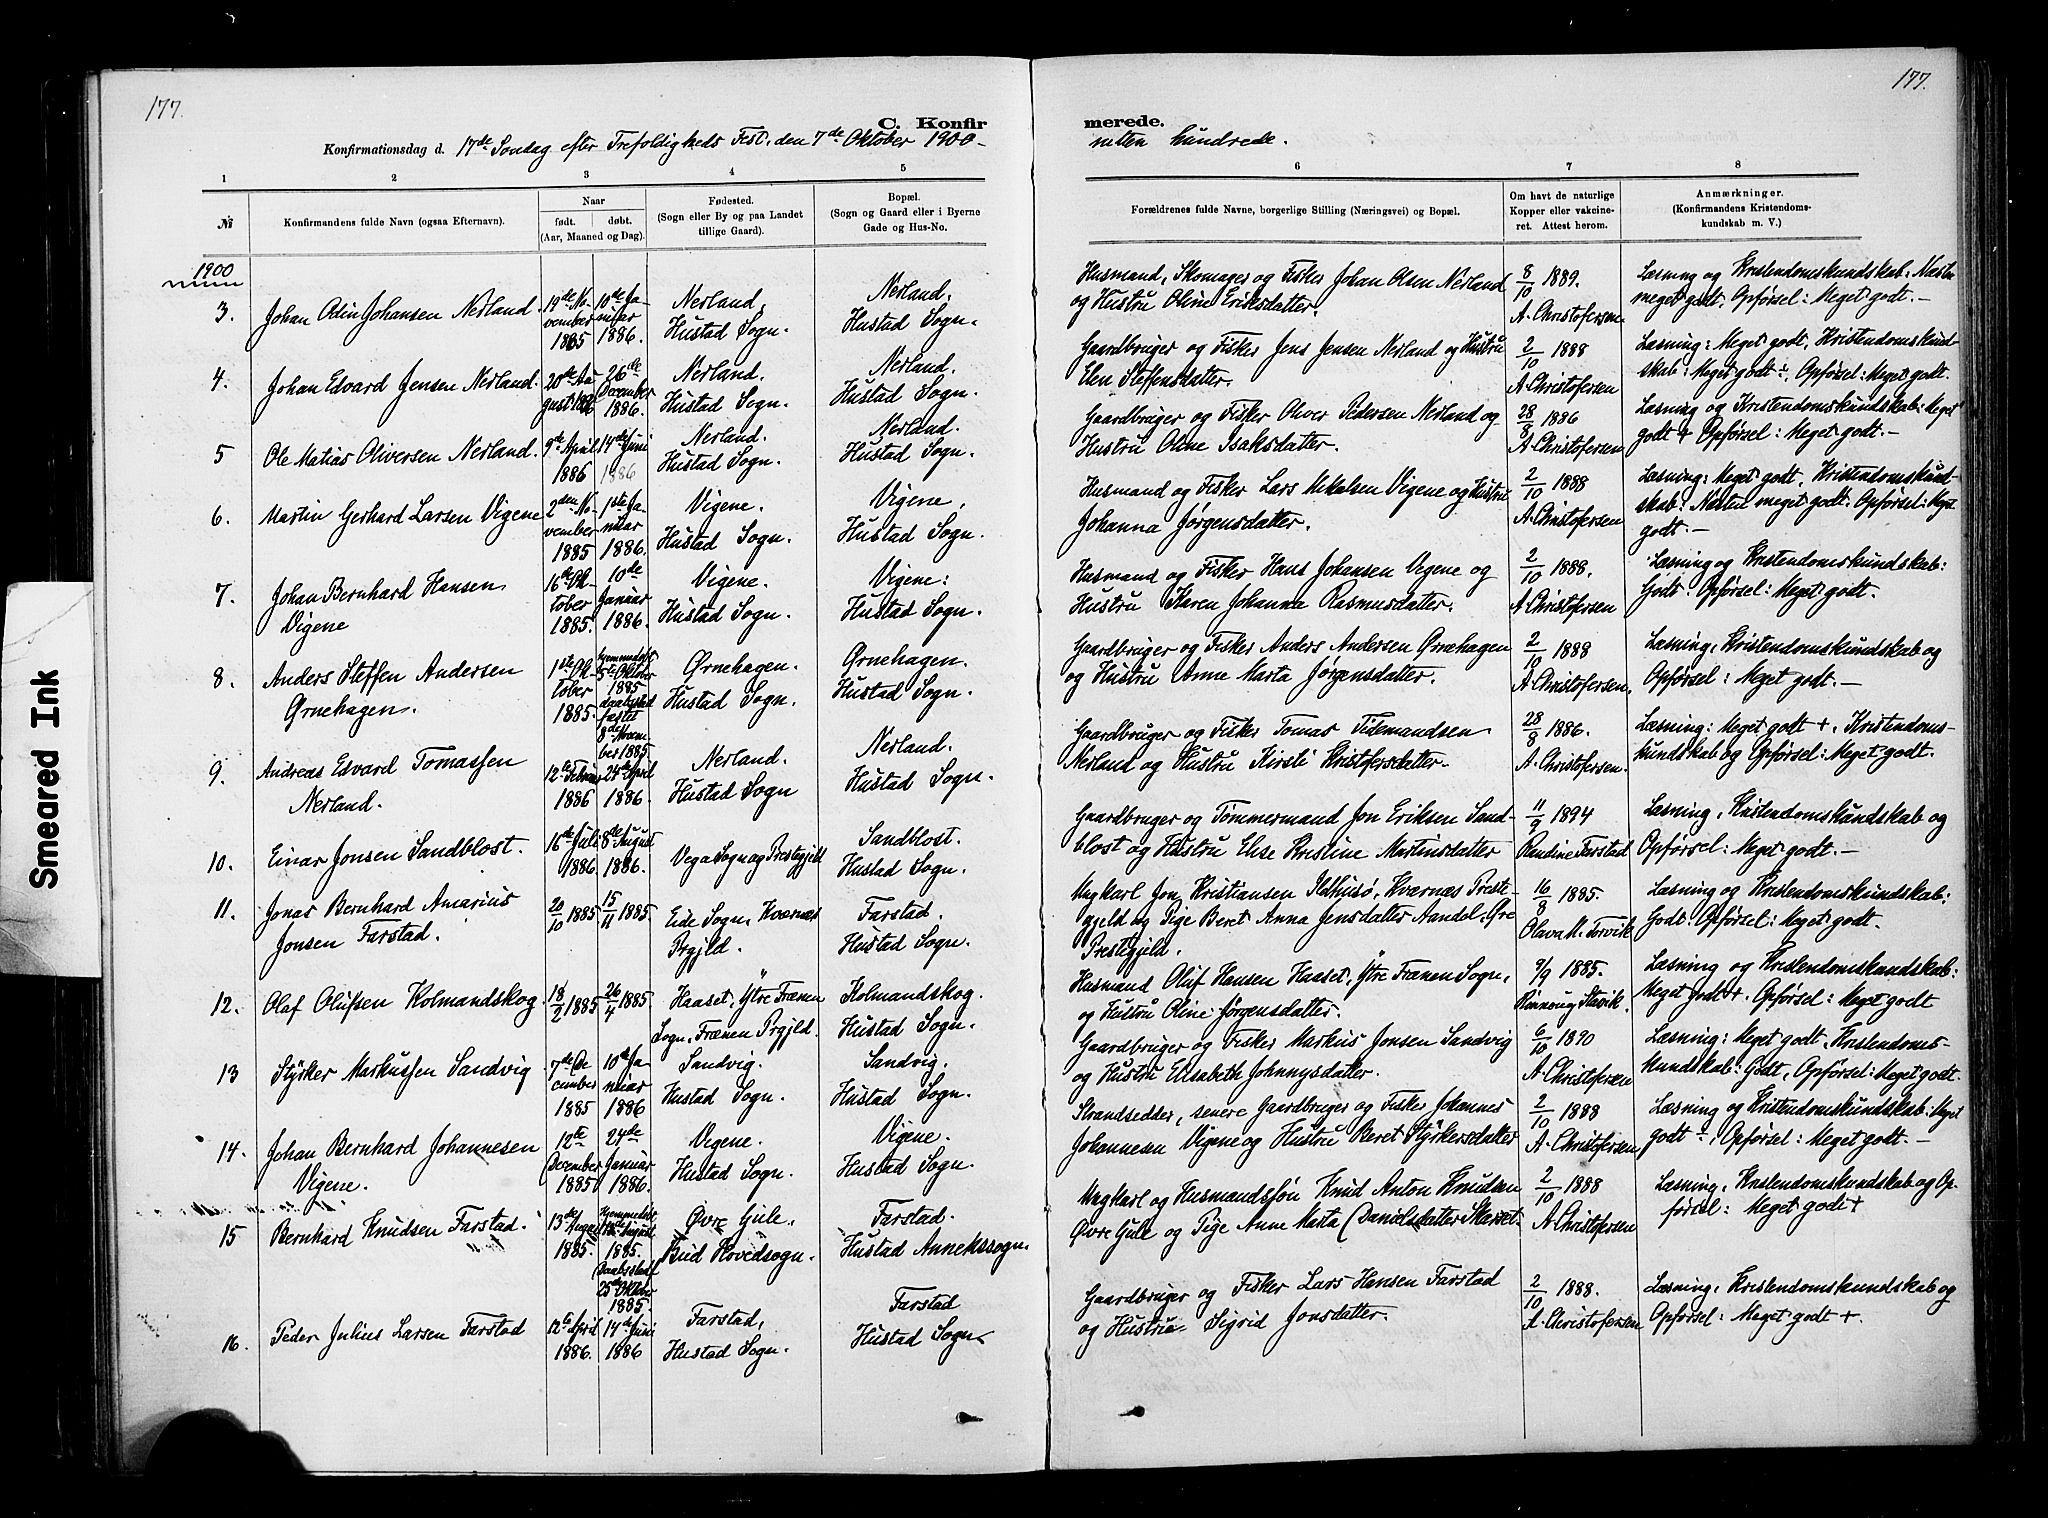 177.
177.
C. Konfirmerede.
Konfirmationsdag d. 17de Søndag efter Trefoldigheds Fest, den 7de Oktober 1900 - nitten hundrede.
1 2 3 4 5 6 7 8
№ Konfirmandens fulde Navn (ogsaa Efternavn). Naar født. døbt. (Aar, Maaned og Dag). Fødested. (Sogn eller By og paa Landet tillige Gaard). Bopæl. (Sogn og Gaard eller i Byerne Gade og Hus-No. Forældrenes fulde Navne, borgerlige Stilling (Næringsvei) og Bopæl. Om havt de naturlige Kopper eller vakcineret. Attest herom. Anmærkninger. (Konfirmandens Kristendomskundskab m. V.)
1900
3. Johan Odin Johansen Nerland. 19de November 1885 10de Januar 1886. Nerland, Hustad Sogn. Nerland. Hustad Sogn. Husmand, Skomager og Fisker Johan Olsen Nerland og Hustru Oline Eriksdatter. 8/10 1889. A. Christofersen. Læsning og Kristendomskundskab: Næsten meget godt, Opførsel: Meget godt. -
4. Johan Edvard Jensen Nerland. 20de August 1886 26de December 1886. Nerland. Hustad Sogn. Nerland. Hustad Sogn. Gaardbruger og Fisker Jens Jensen Nerland og Hustru Elen Steffensdatter. 2/10 1888 A. Christofersen Læsning: Meget godt, Kristendomskundskab: Meget godt -. Opførsel: Meget godt.
5 Ole Matias Oliversen Nerland. 9de April 1886 14de Juni 1886 Nerland. Hustad Sogn. Nerland. Hustad Sogn. Gaardbruger og Fisker Oliver Pedersen Nerland og Hustru Oline Isaksdatter. 28/8 1886 A. Christofersen Læsning og Kristendomskundskab: Meget godt + Opførsel: Meget godt. -
6. Martin Gerhard Larsen Vigene 2den November 1885 1ste Januar 1886. Vigene. Hustad Sogn. Vigene, Hustad Sogn. Husmand og Fisker Lars Mikalsen Vigene og Hustru Johanna Jørgensdatter. 2/10 1888 A. Christofersen Læsning: Meget godt, Kristendomskundskab: Næsten meget godt. Opførsel: Meget godt. -
7. Johan Bernhard Hansen Vigene 16de Oktober 1885. 10de Januar 1886. Vigene. Hustad Sogn. Vigene. Hustad Sogn. Husmand og Fisker Hans Johansen Vigene og Hustru Karen Johanna Rasmusdatter. 2/10 1888. A. Christofersen Læsning og Kristendomskundskab: Godt. Opførsel: Meget godt.
8. Anders Steffen Andersen Ørnehagen. 1ste Oktober 1885. hjemmedøbt 5te Oktober 1885 daab stadfæstet 8de November 1885 Ørnehagen. Hustad Sogn. Ørnehagen. Hustad Sogn. Gaardbruger og Fisker Anders Andersen Ørnehagen og Hustru Anne Marta Jørgensdatter. 2/10 1888 A. Christofersen. Læsning, Kristendomskundskab og Opførsel: Meget godt. -
9. Andreas Edvard Tomassen Nerland. 12te Februar 1886 24de April 1886. Nerland. Hustad Sogn Nerland. Hustad Sogn. Gaardbruger og Fisker Tomas Tidemandsen Nerland og Hustru Kirsti Kristofersdatter. 28/8 1886. A. Christofersen. Læsning: Meget godt +, Kristendomskundskab og Opførsel: Meget godt.
10. Einar Jonsen Sandblost. 16de Juli 1886. 8de August 1886. Vega Sogn og Prestegjeld Sandblost. Hustad Sogn. Gaardbruger og Tømmermand Jon Eriksen Sandblost og Hustru Else Kristine Martinsdatter 11/9 1894 Randine Farstad Læsning, Kristendomskundskab og Opførsel: Meget godt. -
11. Jonas Bernhard Amarius Jonsen Farstad. 20/10 1885 15/11 1885 Eide Sogn, Kvernæs Prgjld. Farstad. Hustad Sogn. Ungkarl Jon Kristiansen Ildhusø, Kværnæs Prestegjeld og Pige Beret Anna Jensdatter Aandal, Øre Prestegjeld. 16/8 1885. Olava M. Torvik Læsning og Kristendomskundskab: Godt. Opførsel: Meget godt.
12. Olaf Olufsen Kolmandskog. 18/2 1885 26/4 1885. Haaset, Ytre Frænen Sogn, Frænen Prgjld. Kolmandskog. Hustad Sogn. Husmand Oluf Hansen Haaset, Ytre Frænen Sogn, og Hustru Oline Jørgensdatter. 9/9 1885. Rinnoug Stavik. Læsning og Kristendomskundskab: Meget godt +. Opførsel: Meget godt
13 Styrker Markussen Sandvig 7de December 1885 10de Januar 1886 Sandvig. Hustad Sogn. Sandvig. Hustad Sogn. Gaardbruger og Fisker Markus Jonsen Sandvig og Hustru Elisabeth Johnnysdatter. 6/10 1890 A. Christofersen Læsning: Meget godt, Kristendomskundskab: Godt, Opførsel: Meget godt.
14. Johan Bernhard Johannesen Vigene. 12te December 1885 24de Januar 1886. Vigene. Hustad Sogn. Vigene. Hustad Sogn. Strandsedder, senere Gaardbruger og Fisker Johannes Johannesen Vigene og Hustru Beret Styrkersdatter 2/10 1888 A. Christofersen Læsning og Kristendomskundskab: Meget godt -, Opførsel: Meget godt. -
15 Bernhard Knudsen Farstad. 13de August 1885. hjemmedøbt August 1885. Daab stadf. 25de Oktober 1885. Øvre Gule, Bud Hovedsogn. Farstad. Hustad Annekssogn. Ungkarl og Husmandssøn Knud Anton Knudsen Øvre Gule og Pige Anne Marta Danielsdatter Skarset. 2/10 1888 A. Christofersen Læsning, Kristendomskundskab og Opførsel: Meget godt +
16. Peder Julius Larsen Farstad 12te April 1886. 14de Juni 1886 Farstad, Hustad Sogn. Farstad Hustad Sogn Gaardbruger og Fisker Lars Hansen Farstad og Hustru Sigrid Jonsdatter. 2/10 1888. A. Christofersen Læsning, Kristendomskundskab og Opførsel: Meget godt +.
Smeared Ink